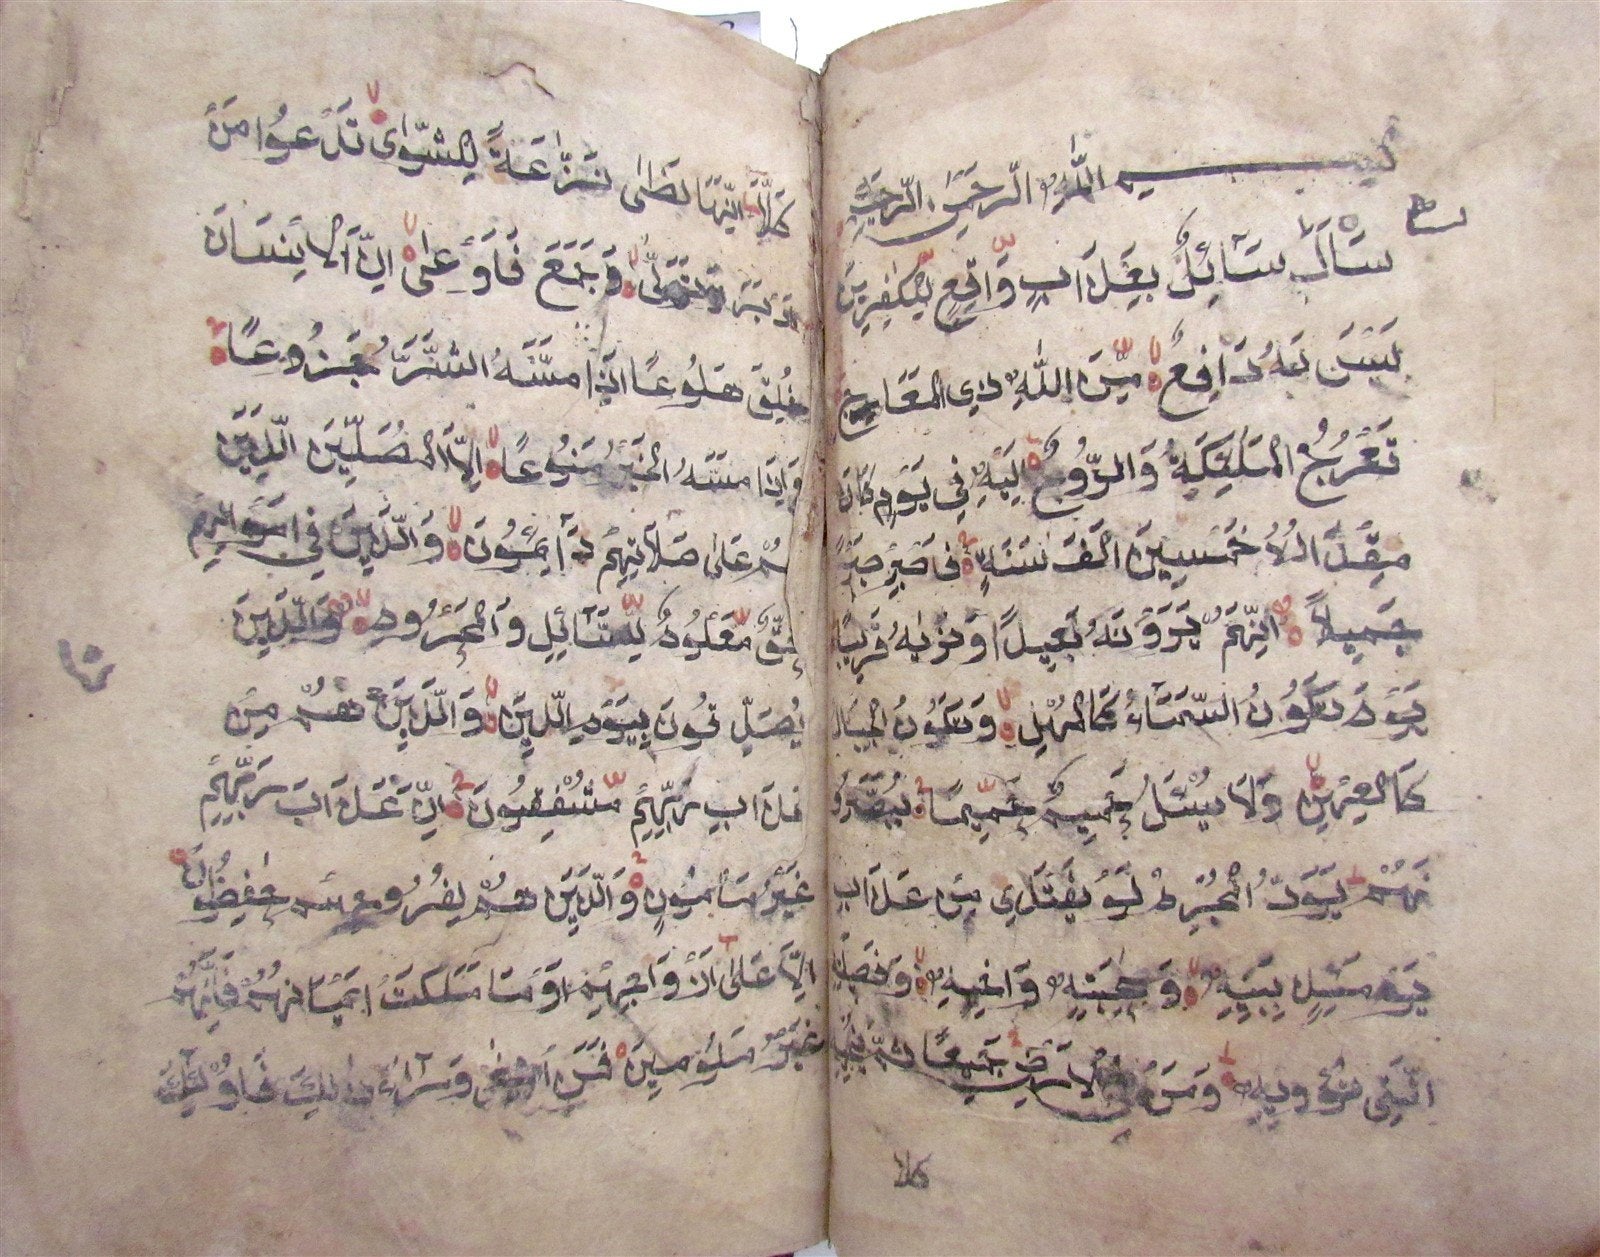 بســـــــم اللّٰهِ الرَّحمٰنِ الرَّحِيمِ
سَاَلَ سَآئِلٌۢ بِعَذَابٍ وَّاقِعٍ لِّلْكٰفِرِيْنَ
لَيْسَ لَهٗ دَافِعٌ مِّنَ اللّٰهِ ذِي الْمَعَارِجِ
تَعْرُجُ الْمَلٰٓئِكَةُ وَالرُّوْحُ اِلَيْهِ فِي يَوْمٍ كَانَ
مِقْدَارُهٗ خَمْسِيْنَ اَلْفَ سَنَةٍ فَاصْبِرْ صَبْرًا
جَمِيْلًا اِنَّهُمْ يَرَوْنَهٗ بَعِيْدًا وَّنَرٰىهُ قَرِيْبًا
يَوْمَ تَكُوْنُ السَّمَآءُ كَالْمُهْلِ وَتَكُوْنُ الْجِبَالُ
كَالْعِهْنِ وَلَا يَسْئَلُ حَمِيْمٌ حَمِيْمًا يُبَصَّرُوْ
نَهُمْ يَوَدُّ الْمُجْرِمُ لَوْ يَفْتَدِيْ مِنْ عَذَابِ
يَوْمَئِذٍ بِبَنِيْهِ وَصَاحِبَتِهٖ وَاَخِيْهِ وَفَصِيْلَتِهِ
الَّتِيْ تُؤْوِيْهِ وَمَنْ فِي الْاَرْضِ جَمِيْعًا ثُمَّ يُنْجِيْهِ
كلا
كَلَّا اِنَّهَا لَظٰى نَزَّاعَةً لِّلشَّوٰى تَدْعُوْا مَنْ
اَدْبَرَ وَتَوَلّٰى وَجَمَعَ فَاَوْعٰى اِنَّ الْاِنْسَانَ
خُلِقَ هَلُوْعًا اِذَا مَسَّهُ الشَّرُّ جَزُوْعًا
وَاِذَا مَسَّهُ الْخَيْرُ مَنُوْعًا اِلَّا الْمُصَلِّيْنَ الَّذِيْنَ
هُمْ عَلٰى صَلَاتِهِمْ دَآئِمُوْنَ وَالَّذِيْنَ فِيْ اَمْوَالِهِمْ
حَقٌّ مَّعْلُوْمٌ لِّلسَّآئِلِ وَالْمَحْرُوْمِ وَالَّذِيْنَ
يُصَدِّقُوْنَ بِيَوْمِ الدِّيْنِ وَالَّذِيْنَ هُمْ مِنْ
عَذَابِ رَبِّهِمْ مُّشْفِقُوْنَ اِنَّ عَذَابَ رَبِّهِمْ
غَيْرُ مَاْمُوْنٍ وَالَّذِيْنَ هُمْ لِفُرُوْجِهِمْ حٰفِظُوْنَ
اِلَّا عَلٰى اَزْوَاجِهِمْ اَوْ مَا مَلَكَتْ اَيْمَانُهُمْ فَاِنَّهُمْ
غَيْرُ مَلُوْمِيْنَ فَمَنِ ابْتَغٰى وَرَآءَ ذٰلِكَ فَاُولٰٓئِكَ